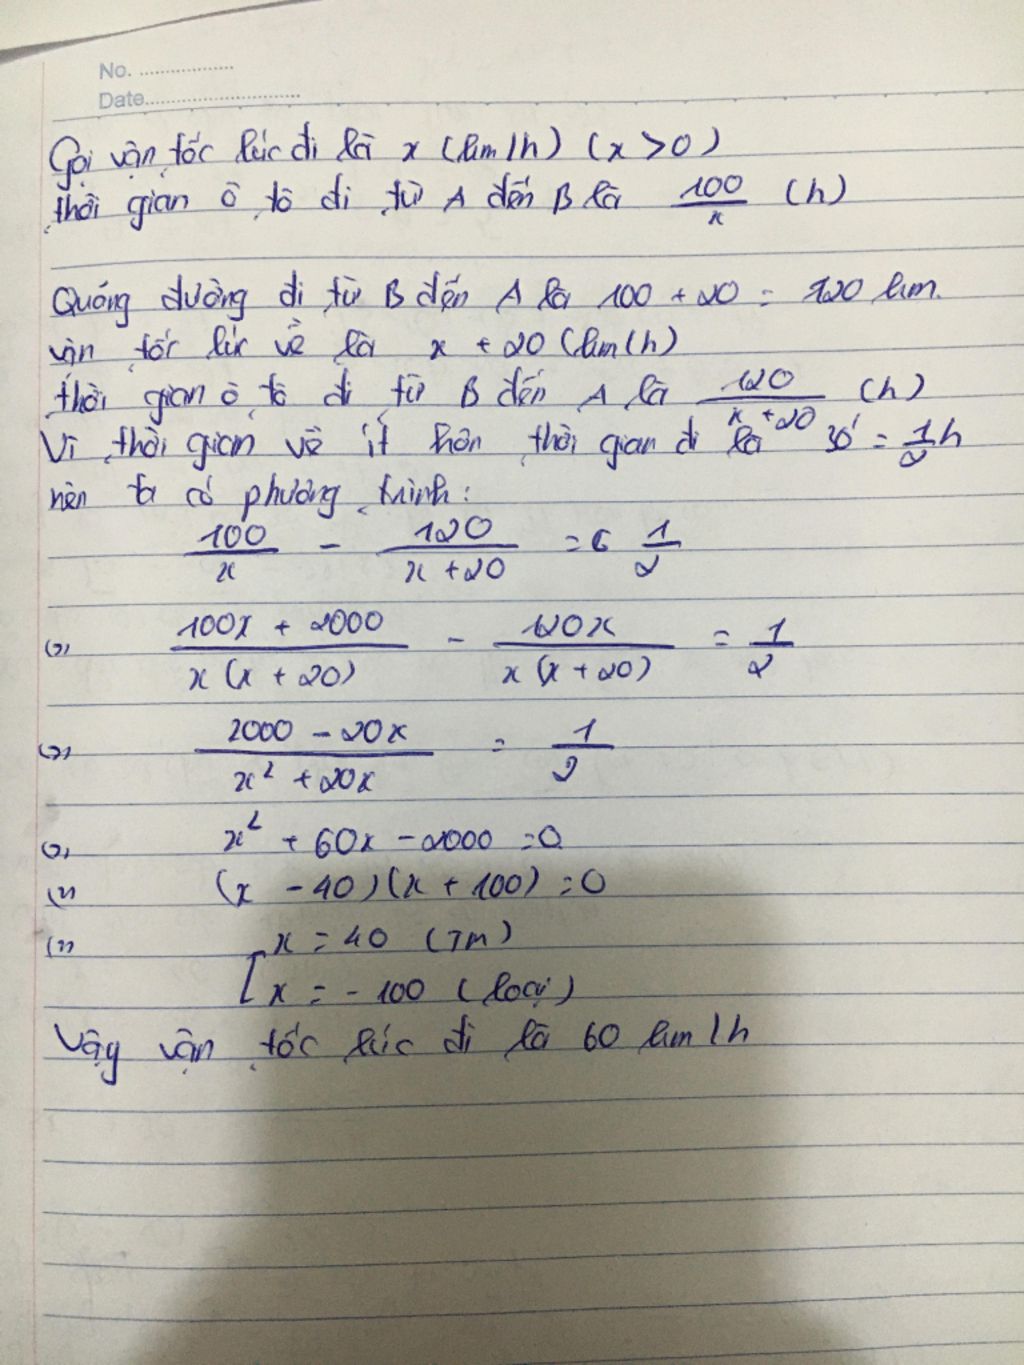 No. ..................
Date..............................
Gọi vận tốc lúc đi là x (km/h) (x > 0)
thời gian ô tô đi từ A đến B là 100/x (h)
Quáng đường đi từ B đến A là 100 + 20 = 120 km.
vận tốc lúc về là x + 20 (km/h)
thời gian ô tô đi từ B đến A là 120/(x + 20) (h)
Vì thời gian về ít hơn thời gian đi là 30' = 1/2 h
nên ta có phương trình:
100/x - 120/(x + 20) = 1/2
(=) (100x + 2000)/(x(x + 20)) - 120x/(x(x + 20)) = 1/2
(=) (2000 - 20x)/(x² + 20x) = 1/2
(=) x² + 60x - 2000 = 0
(=) (x - 40)(x + 100) = 0
(=) [x = 40 (TM)
x = -100 (loại)
Vậy vận tốc lúc đi là 60 km/h